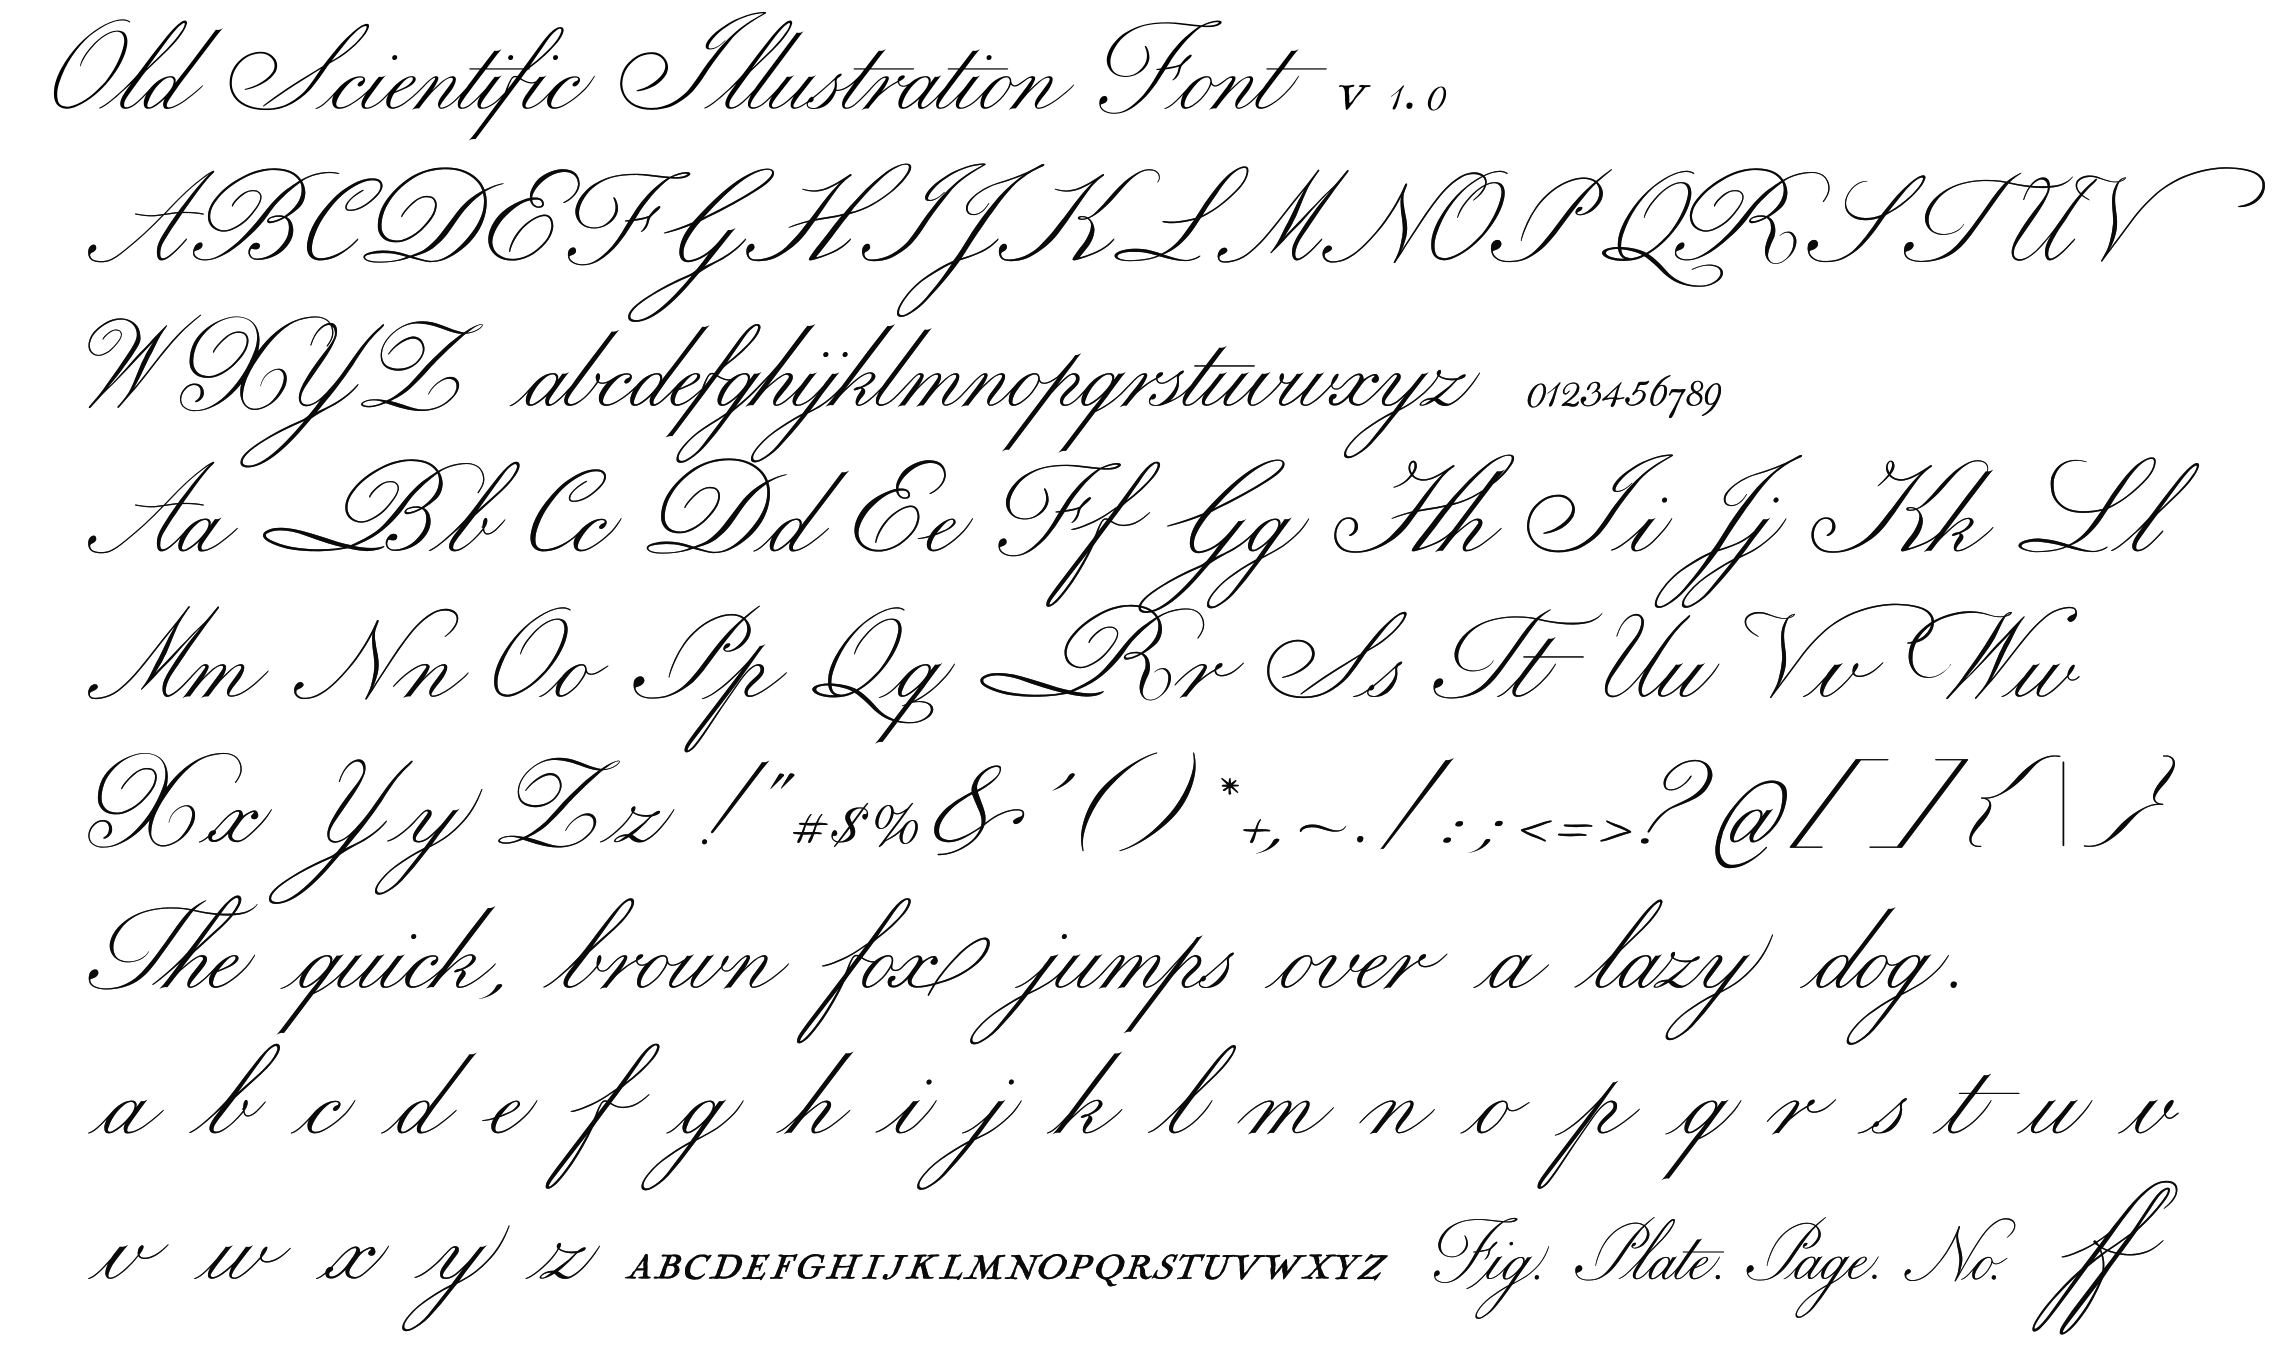 Old Scientific Illustration Font v 1.0
ABCDEFGHIJKLMNOPQRSTUV
WXYZ abcdefghijklmnopqrstuvwxyz 0123456789
Aa Bb Cc Dd Ee Ff Gg Hh Ii Jj Kk Ll
Mm Nn Oo Pp Qq Rr Ss Tt Uu Vv Ww
Xx Yy Zz !"#$%&'()*+,~./:;<=>?@[]{|}
The quick, brown fox jumps over a lazy dog.
a b c d e f g h i j k l m n o p q r s t u v
v w x y z ABCDEFGHIJKLMNOPQRSTUVWXYZ Fig. Plate. Page. No. ff